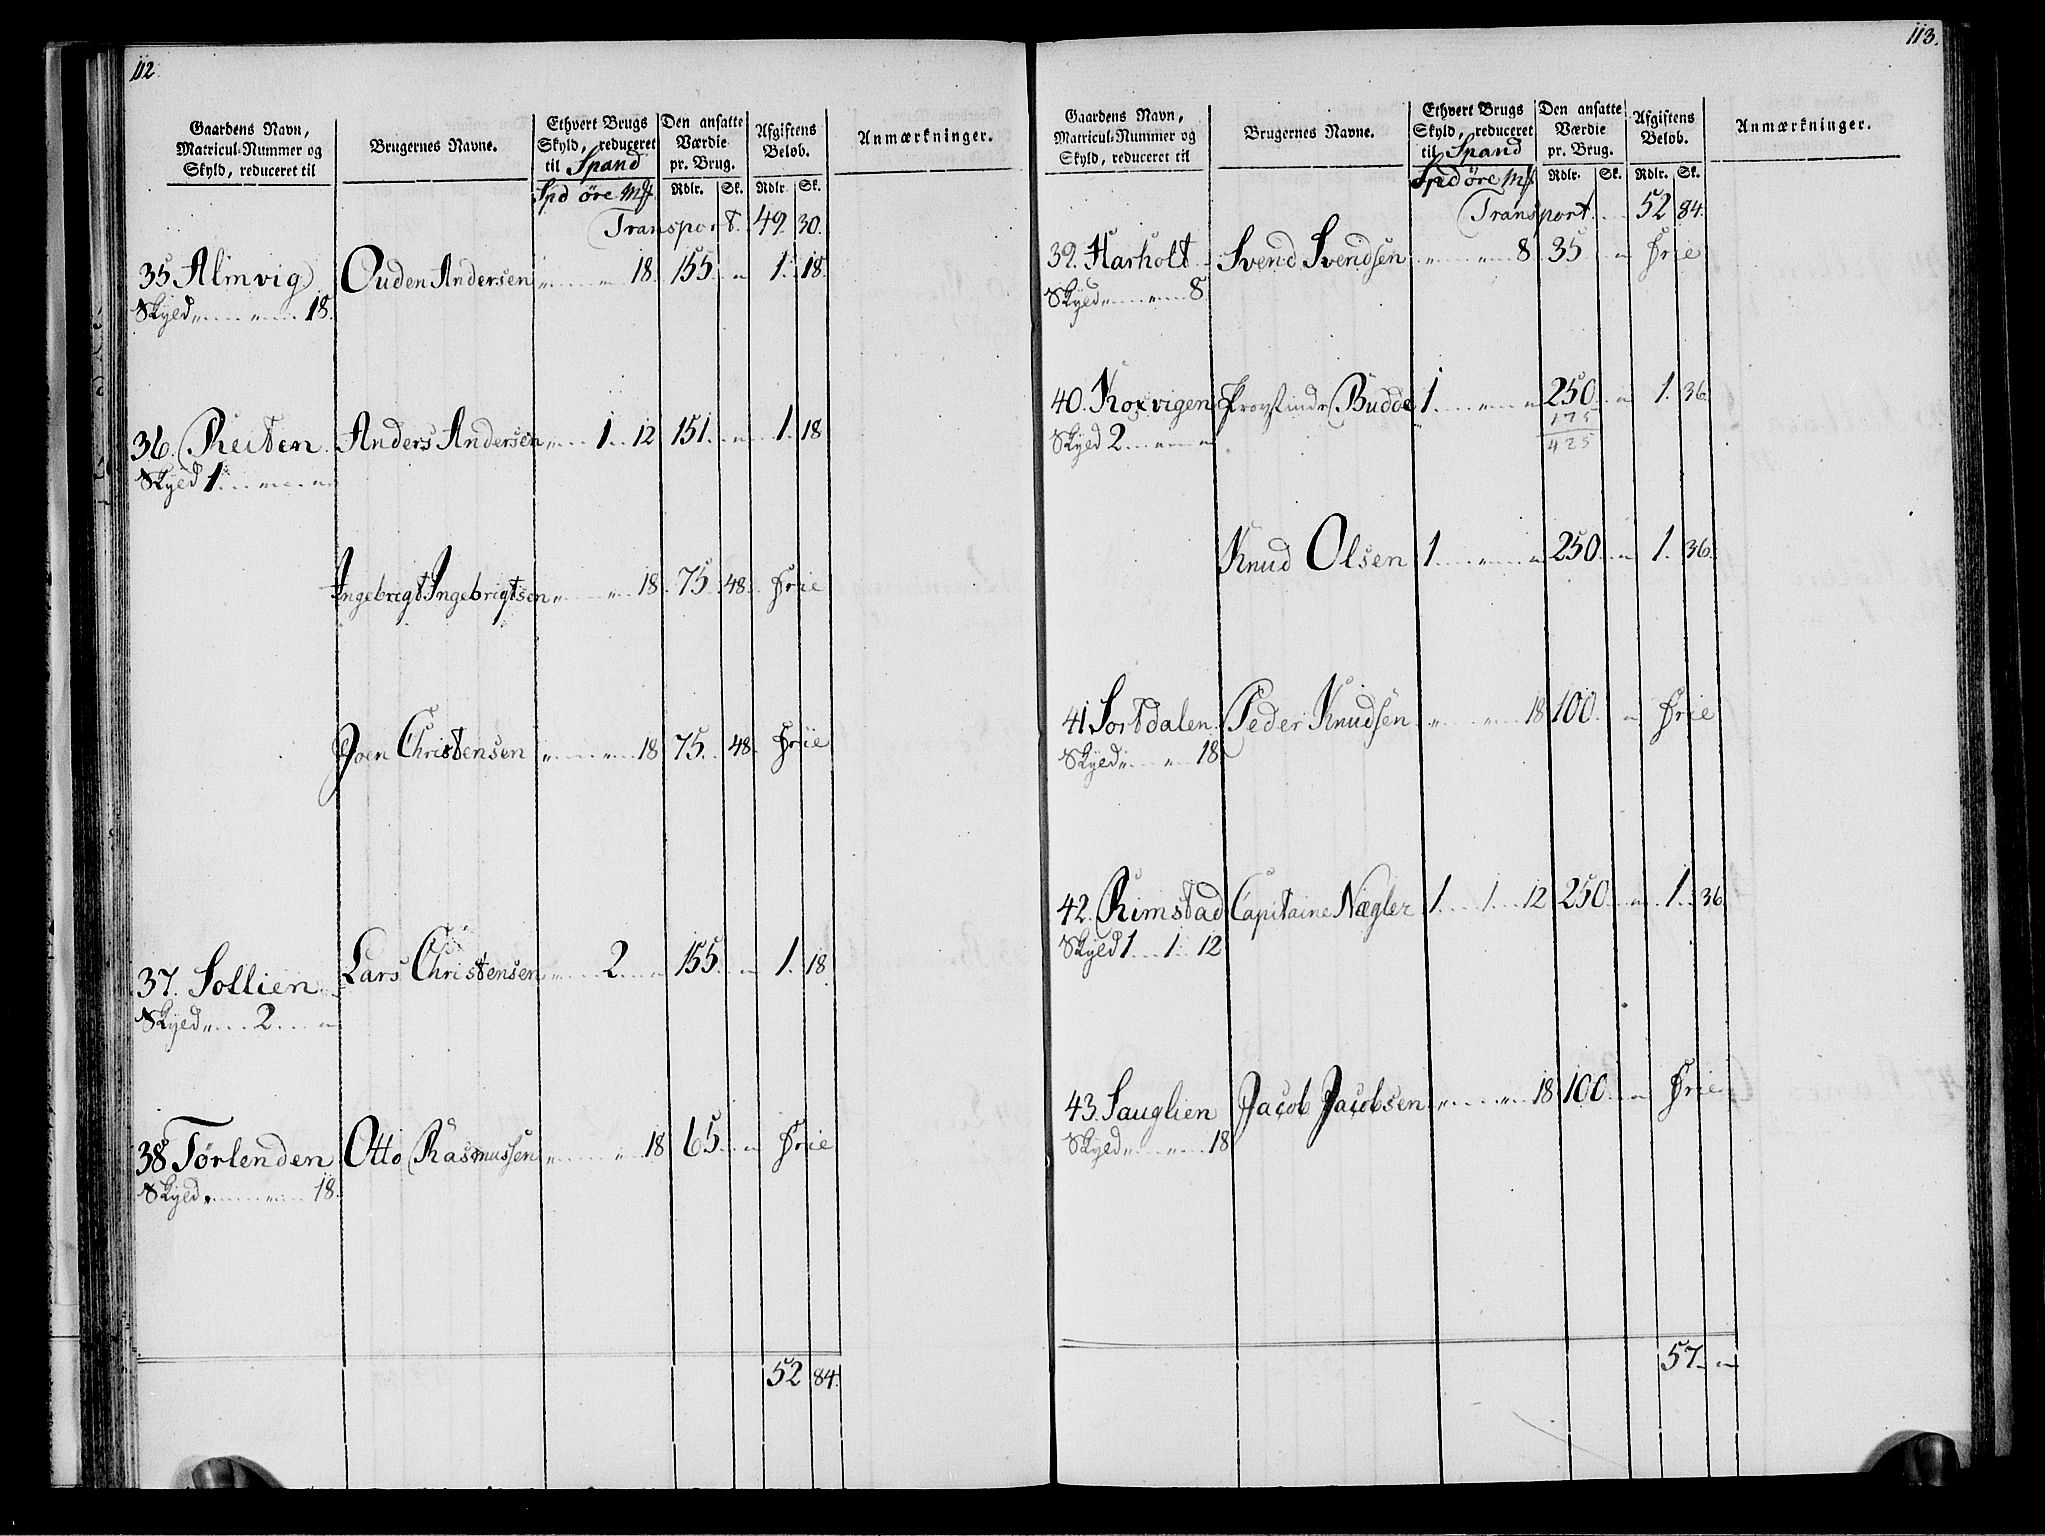 112.
Gaardens Navn, Matricul-Nummer og Skyld, reduceret til | Brugernes Navne. | Ethvert Brugs Skyld, reduceret til Spand | Den ansatte Værdie pr. Brug. | Afgiftens Beløb. | Anmærkninger.
Spd øre Mſ | Rdlr. | Sk. | Rdlr. | Sk.
Transport. 49. 30.
35 Almvig Ouden Andersen „ „ 18. 155 „ 1. 18.
Skyld „ „ 18.
36. Reiten Anders Andersen „ 1 12 151. „ 1. 18
Skyld 1 „ „
Ingebrigt Ingebrigtsen „ „ 18. 75. 48. Frie
Joen Christensen „ „ 18 75. 48. Friie
37. Sollien Lars Christensen „ 2 „ 155. „ 1. 18
Skyld „ 2 „
38 Tørlenden Otto Rasmussen „ „ 18 65. „ Frie
Skyld „ „ 18.
52 84.
113.
Gaardens Navn, Matricul-Nummer og Skyld, reduceret til | Brugernes Navne. | Ethvert Brugs Skyld, reduceret til Spand | Den ansatte Værdie pr. Brug. | Afgiftens Beløb. | Anmærkninger.
Spd øre Mſ | Rdlr. | Sk. | Rdlr. | Sk.
Transport. 52 84.
39. Harholt Svend Svendsen „ „ 8 35 „ Frie
Skyld „ „ 8
40. Koxvigen Provstinde Budde 1. „ „ 250. „ 1. 36.
175
Skyld 2 „ „ 425
Knud Olsen 1 „ „ 250. „ 1. 36.
41 Sortdalen Peder Knudsen „ „ 18 100. „ Frie
Skyld „ „ 18.
42. Rimstad Capitaine Nægler 1 1 12 250 „ 1. 36
Skyld 1 1 12
43. Sauglien Jacob Jacobsen „ „ 18 100. „ Frie
Skyld „ „ 18
57. „